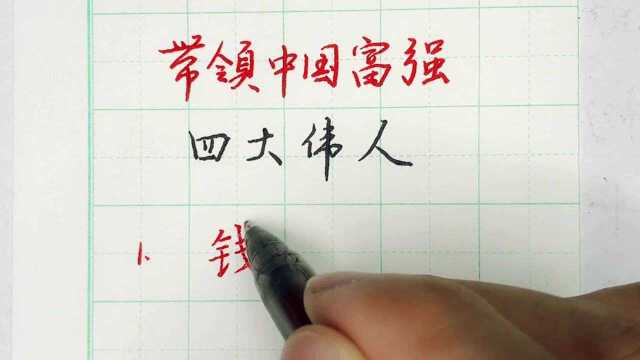 带領中国富强
四大伟人
1. 钱